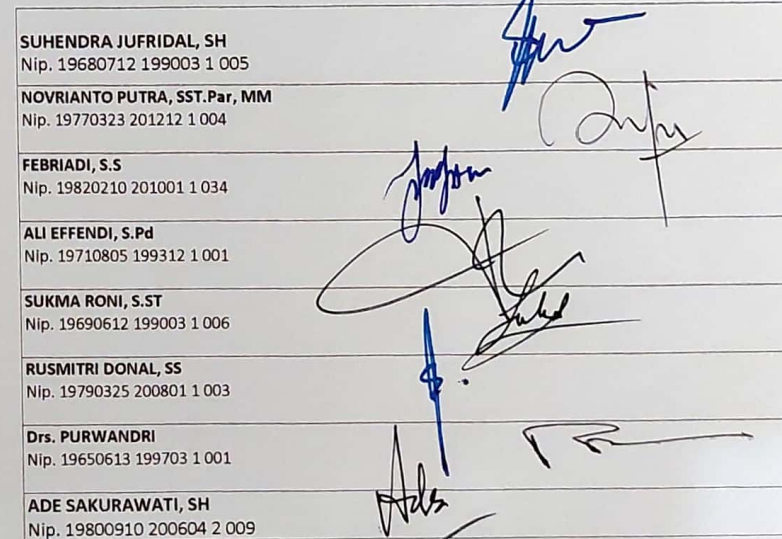 SUHENDRA JUFRIDAL, SH
Nip. 19680712 199003 1 005
NOVRIANTO PUTRA, SST.Par, MM
Nip. 19770323 201212 1 004
FEBRIADI, S.S
Nip. 19820210 201001 1 034
ALI EFFENDI, S.Pd
Nip. 19710805 199312 1 001
SUKMA RONI, S.ST
Nip. 19690612 199003 1 006
RUSMITRI DONAL, SS
Nip. 19790325 200801 1 003
Drs. PURWANDRI
Nip. 19650613 199703 1 001
Ads
ADE SAKURAWATI, SH
Nip. 19800910 200604 2 009